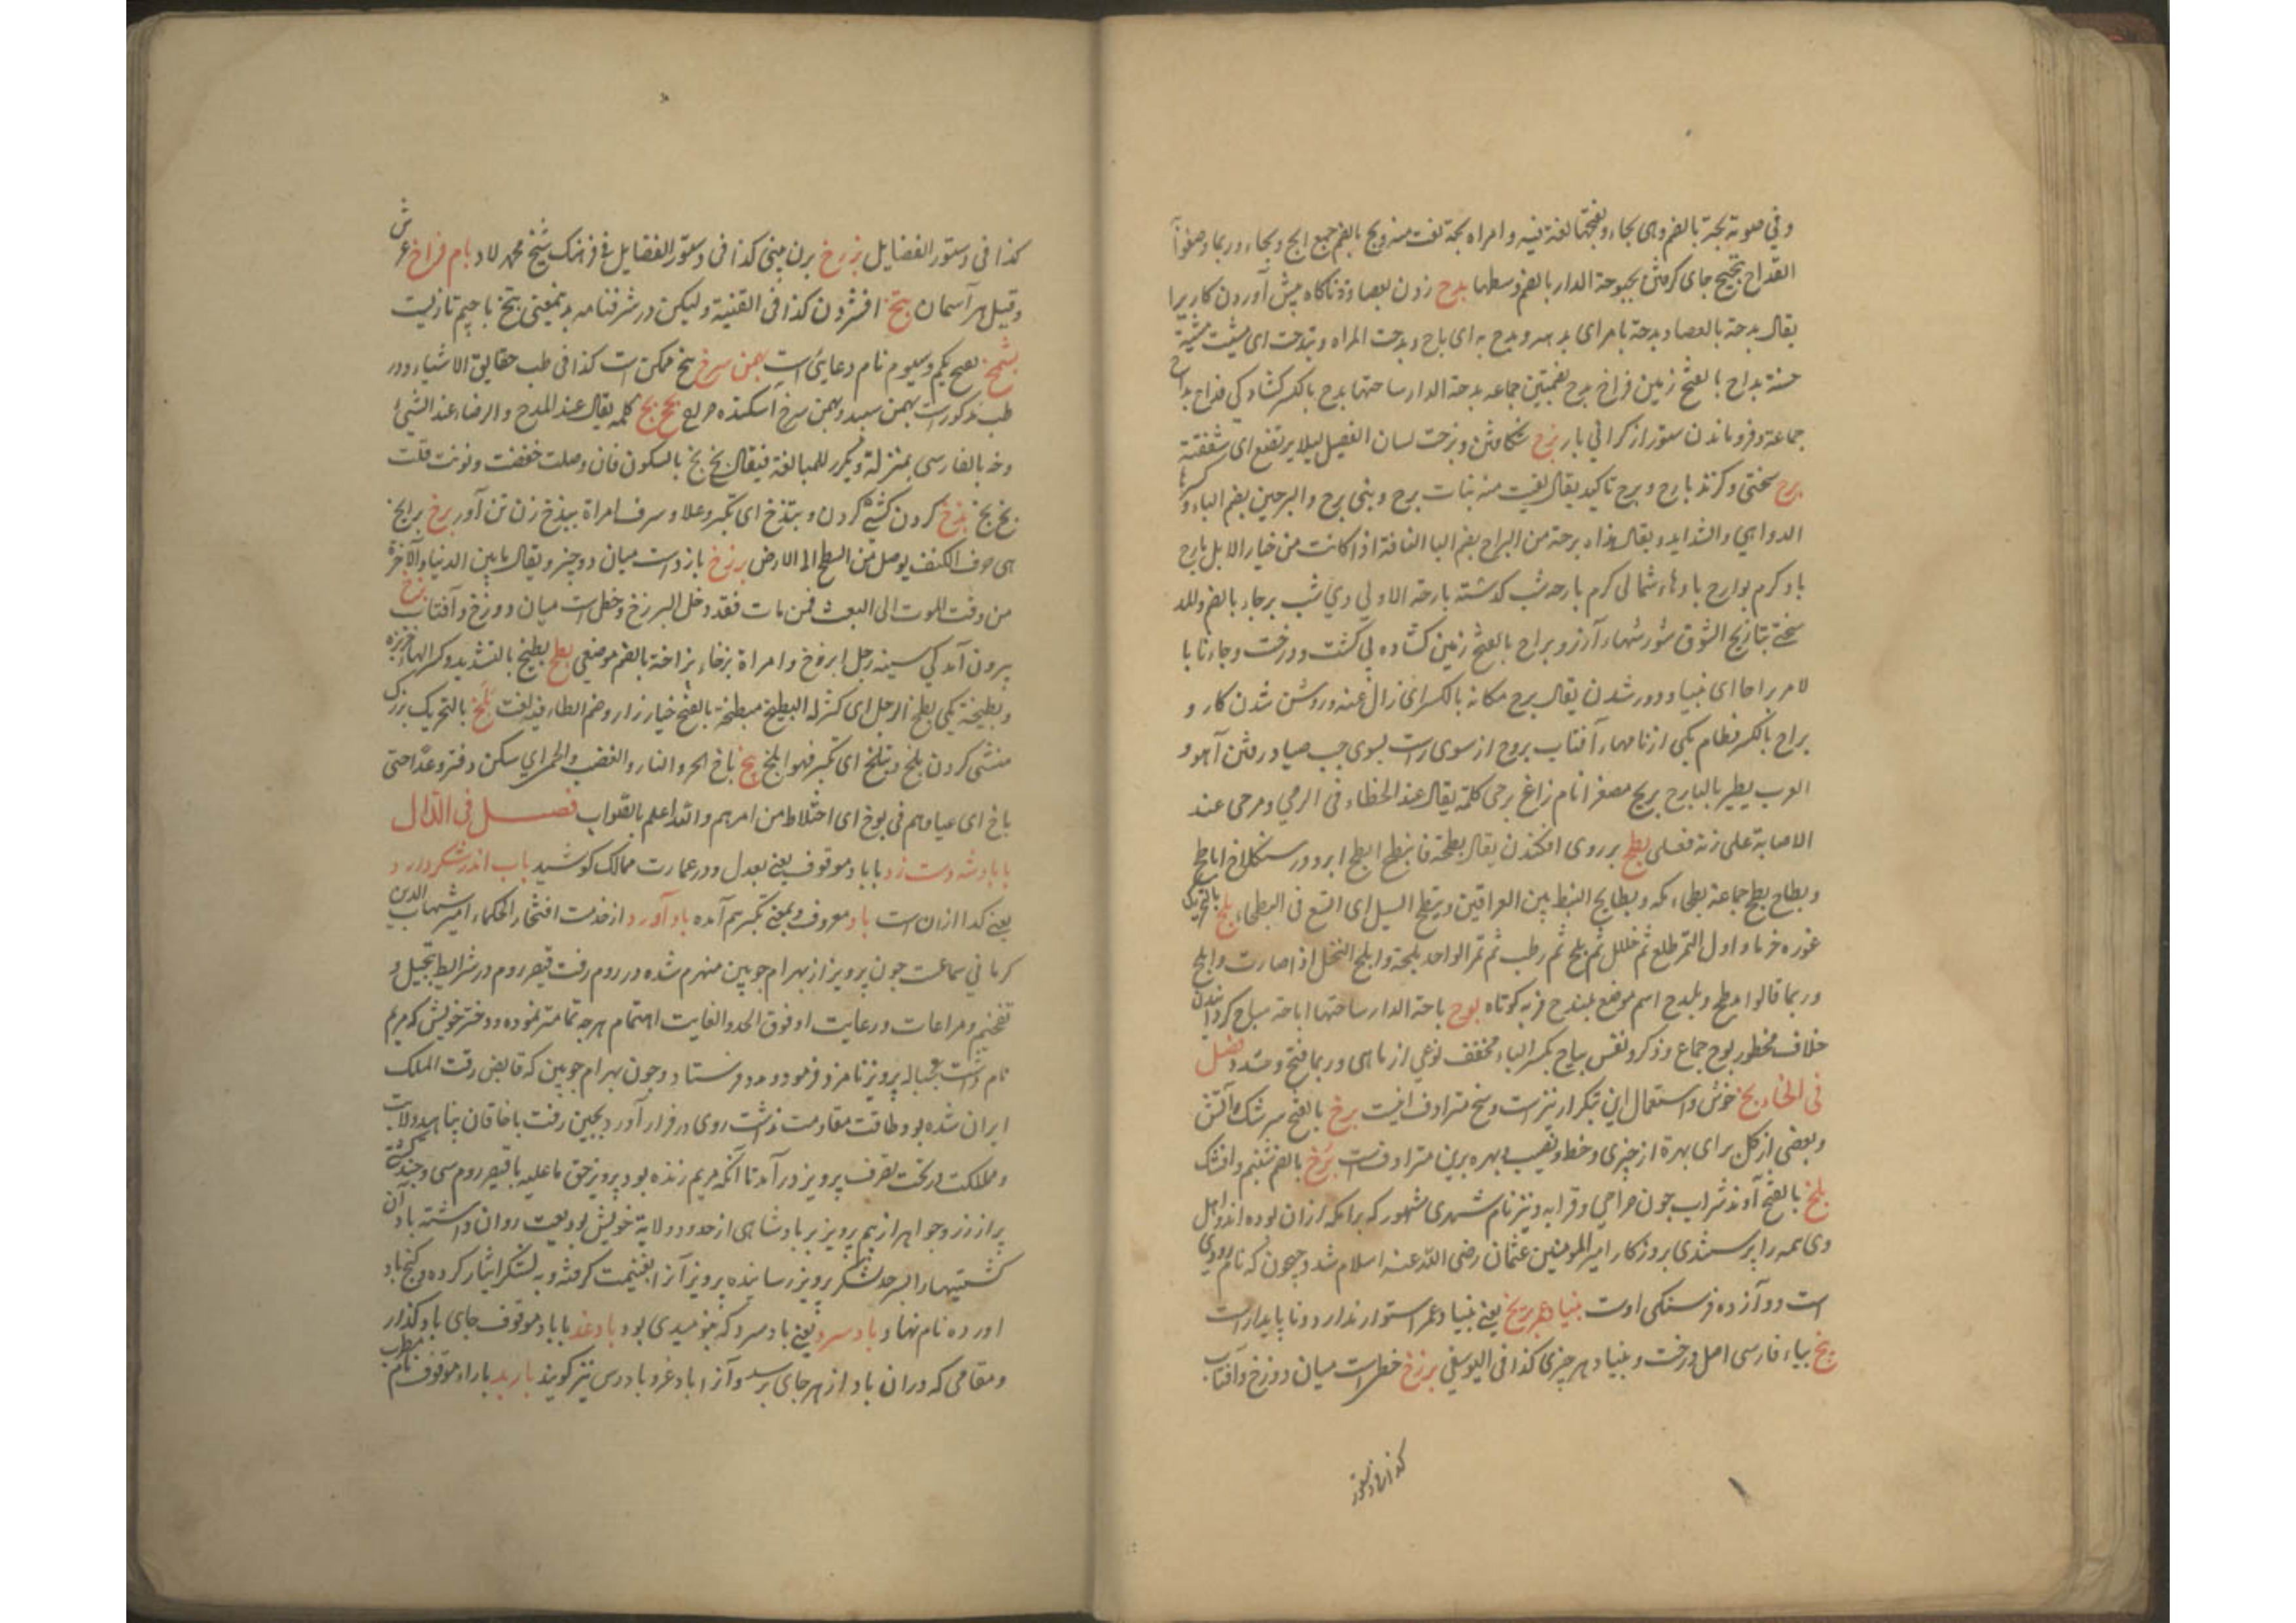 وفي صوته بحة بالضم وهی بحاء وبفتحها لغة فیه وامراه بحة لغت منه وبح بالضم جمع ابح وبحاء وربما وصفوا
القداح تبحبح جای کرفتن بحبوحة الدار بالضم وسطها بدح زدن بعصا وناکاه پیش آوردن کاریرا
یقال بدحه بالعصا وبدحه بامر ای بدهه وبدح به ای باح وبدحت المراه وتبدحت ای مشیت مشیة
حسنة بداح بالفتح زمین فراخ بدح بضمتین جماعه بدحة الدار ساحتها بدح بالکسر کشادکی فداح بداح
جماعة وفروماندن ستور از کرانی بار بزح شکافتن وبزحت لسان الفصیل لیلا یرتضع ای شققته
برح سختی وکزند بارح وبرح تاکید یقال لقیت منه بنات برح وبنی برح والبرحین بضم الباء وکسرها
الدواهی والشداید ویقال هذاه برحة من البراح بضم البا الناقة اذا کانت من خیار الابل بارح
باد کرم بوارح بادهاء شمالی کرم بارحه شب کذشته بارحة الاولی دی شب برحاء بالضم والمد
سختی تباریح الشوق شورشهاء آرزو براح بالفتح زمین کشاده بی کشت ودرخت وجاءنا با
لامر براحا ای بینا ودور شدن یقال برح مکانه بالکسر ای زال عنه وروشن شدن کار و
براح بالکسر قطام یکی از نامهاء آفتاب بروح از سوی راست بسوی چپ صیاد رفتن آهو و
العرب یطیر بالبارح بریح مصغرا نام زاغ برحی کلمة یقال عند الخطاء فی الرمی ومرحی عند
الاصابة علی زنة فعلی بطح بر روی افکندن یقال بطحه فانبطح ابطح ابرود سنکلاخ اباطح
وبطاح بطح جماعة بطحاء مکه وبطایح النبط بین العراقین وتبطح السیل ای اتسع فی البطحاء بلح بالتحریک
غوره خرما واول التمر طلع ثم خلال ثم بلح ثم رطب ثم تمر الواحد بلحة وابلح النخل اذا صارت وابلح
وربما قالوا بلطح وبلدح اسم موضع بلندح فربه کوتاه بوح باحة الدار ساحتها اباحة مباح کردانیدن
خلاف محظور بوح جماع وذکر ونفس بیاح بکسر الباء مخفف نوعی از ماهی وربما فتح وشدد فصل
فی الخاء بخ خوش واستعمال این تبکرار نیز است وبخ مترادف اینست برخ بالفتح سرشک آتش
وبعضی از کل برای بهرة از چیزی وحظ ونصیب وبهره برین مترادفست برخ بالضم شبنم وافشک
بلخ بالفتح آوند شراب چون صراحی وقرابه ونیز نام شهری مشهور که برامکه ازان بوده اند واهل
وی همه را پرستیدی بروزکار امیر المومنین عثمان رضی الله عنه اسلام شد وجیحون که نام رودی
است دوآزده فرسنکی اوست بنیاد عمر بریخ یعنی بنیاد عمر استوار ندارد ونا پایدار است
بیخ بیاء فارسی اصل درخت وبنیاد هر چیزی کذا فی الیوسفی برزخ خطراست میان دوزخ وآفتاب
کذا فی دستور
کذا فی دستور الفضایل بزرخ برن مینی کذا فی دستور الفضایل فی فرهنک شیخ محمد لاد بام فراخ عرش
وقیل هر آسمان بتخ افشردن کذا فی القنیة ولیکن در شرفنامه بدنمعنی بتخ باجیم تازیست
بشمخ بفتح یکم وسیوم نام دعایی است بهمن سرخ بیخ ممکن است کذا فی طب حقایق الاشیاء ودر
طب مذکورست بهمن سپید وبهمن سرخ اسکنده هر یع بخ بخ کلمه یقال عند المدح والرضاء عند الشیء
وخه بالفارسی بمنزلة ویکرر للمبالغة فیقال بخ بخ بالسکون فان وصلت خففت ونونت قلت
بخ بخ بذخ کردن کشی کردن وتبذخ ای تکبر وعلا وسرف امراة بیذخ زن تن آور برخ برابخ
هی حرف الکنف یوصل من السطح الی الارض برزخ بازداشت میان دو چیز ویقال ما بین الدنیا والآخرة
من وقت الموت الی البعث فمن مات فقد دخل البرزخ وخطر است میان دوزخ وآفتاب بزخ
بیرون آمدکی سینه رجل ابزخ وامراة بزخاء بزاخة بالضم موضعی بطخ بطیخ بالتشدید وکسر الباء خربزه
وبطیخة یکی بطخ الرجل ای کثر له البطیخ مبطخة بالفتح خیارزار وضم الطاء فیه لغت بلخ بالتحریک بزرک
منشی کردن بلخ وتبلخ ای تکبر فهو ابلخ بیخ باخ الحر والنار والغضب والحمر ای سکن وفتر وعدا حتی
باخ ای عیا وهم فی بوخ ای اختلاط من امرهم والله اعلم بالصواب فصل فی الدال
باباد شه دست زد بابا دموقوف یعنی بعدل ودر عمارت ممالک کوشید باب اندر شکر درد
یعنی کدا ازان است باد معروف وبمعنی تکبر هم آمده باد آورد از خدمت افتخار الحکماء امیر شهاب الدین
کرمانی سماعت چون پرویز از بهرام چوبین منهزم شده در روم رفت قیصر روم در شرایط تبجیل و
تفخیم ومراعات ورعایت او فوق الحد والغایت اهتمام هر چه تمامتر نموده ودختر خویش که مریم
نام داشت بحباله پرویز نامزد فرمود ومدد فرستاد وچون بهرام چوبین که قابض رقت الملک
ایران شده بود طاقت مقاومت نداشت روی در فرار آورد بچین رفت با خاقان پناهید ولایت
ومملکت در تحت تصرف پرویز در آمد تا آنکه مریم زنده بود پرویز حق ما علیه با قیصر روم سی وچند کشتی
پر از زر وجواهر از بیم پرویز بر بادشاهی از حدود ولایة خویش بودیعت روان داشته باد آن
کشتیها را بسرحد لشکر پرویز رسانیده پرویز آنرا بغنیمت کرفته وبه لشکر ایثار کرده وکنج باد
آورده نام نهاد باد سرد یعنی باد سرد که بنومیدی بود بادغد بابا دموقوف جای باد کذار
ومقامی که دران باد از هر جای برسد وآنرا بادغر وبادرس نیز کویند باربد باراء موقوف نام مطرب